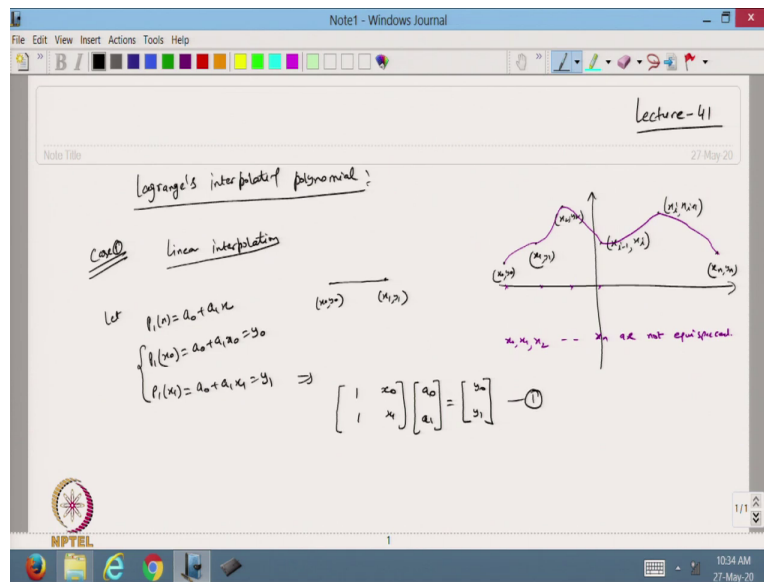 Note1 - Windows Journal
File Edit View Insert Actions Tools Help
B I
Lecture-41
Note Title
27-May-20
Lagrange's interpolating polynomial:
Case ①
Linear interpolation
(x0,y0) (x1,y1)
Let P1(x) = a0 + a1x
{ P1(x0) = a0 + a1x0 = y0
P1(x1) = a0 + a1x1 = y1 ⇒
[ 1 x0 ] [ a0 ] = [ y0 ] — ①
[ 1 x1 ] [ a1 ] [ y1 ]
(x0,y0) (x1,y1) (x2,y2) (xn,yn)
x0, x1, x2 -- xn are not equispaced.
NPTEL
1
1/1
10:34 AM
27-May-20